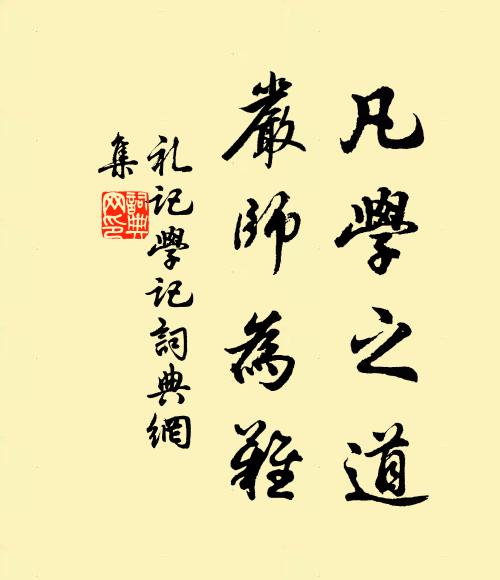 凡學之道
嚴師為難
礼记學记詞典網
集
詞典
网印